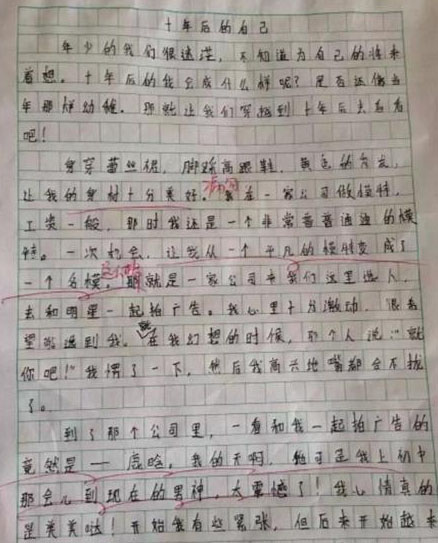 十年后的自己
年少的我们很迷茫，不知道为自己的将来
着想。十年后的我会成什么样呢？是否还像当
年那样幼稚。现就让我们穿越到十年后去看看
吧！
身穿蕾丝裙，脚踩高跟鞋，黄色的头发，
让我的身材十分美好。我在一家公司做模特，
工资一般，那时我还是一个非常普普通通的模
特。一次机会，让我从一个平凡的模特变成了
一个名模。那就是一家公司来我们这里选人，
去和明星一起拍广告。我心里十分激动，很希
望能遇到我。就在我幻想的时候，那个人说:"就
你吧!"我愣了一下，然后我高兴地嘴都合不拢
了。
到了那个公司里，一看和我一起拍广告的
竟然是——鹿晗。我的天啊，他可是我上初中
那会儿到现在的男神，太震憾了！我心情真的
是美美哒！开始我有些紧张，但后来开始越来